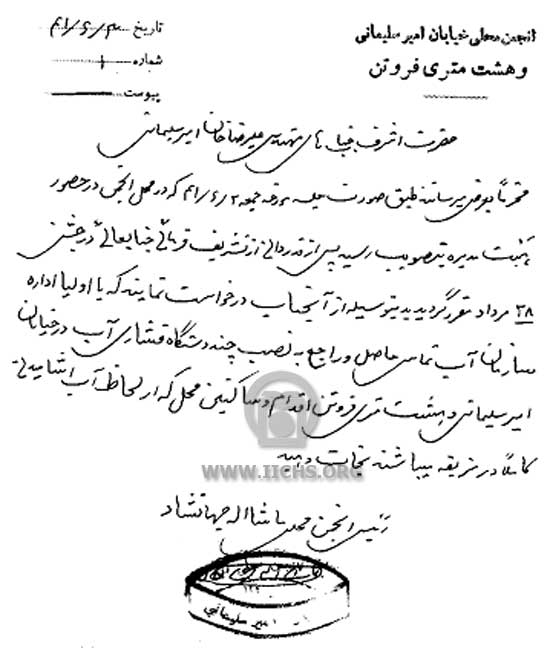 انجمن محلی خیابان امیر سلیمانی
و هشت متری فروتن
تاریخ
شماره ۱
پیوست
حضرت اشرف جناب آقای مهندس علیرضا خان امیر سلیمانی
محترماً بعرض میرساند طبق صورت جلسه مورخه جمعه ۲/۶/۴۱ که در محل انجمن در حضور
هیئت مدیره بتصویب رسید پس از قدردانی از تشریف فرمائی جنابعالی در جشن
۲۸ مرداد مقرر گردید بدینوسیله از آنجناب درخواست نمایند که با اولیا اداره
سازمان آب تماس حاصل و راجع به نصب چند دستگاه فشاری آب در خیابان
امیر سلیمانی و هشت متری فروتن اقدام و ساکنین محل که از لحاظ آب آشامیدنی
کاملاً در مضیقه میباشند نجات دهید
WWW.IICHS.ORG
رئیس انجمن محلی ماشااله جهانشاد
امیر سلیمانی